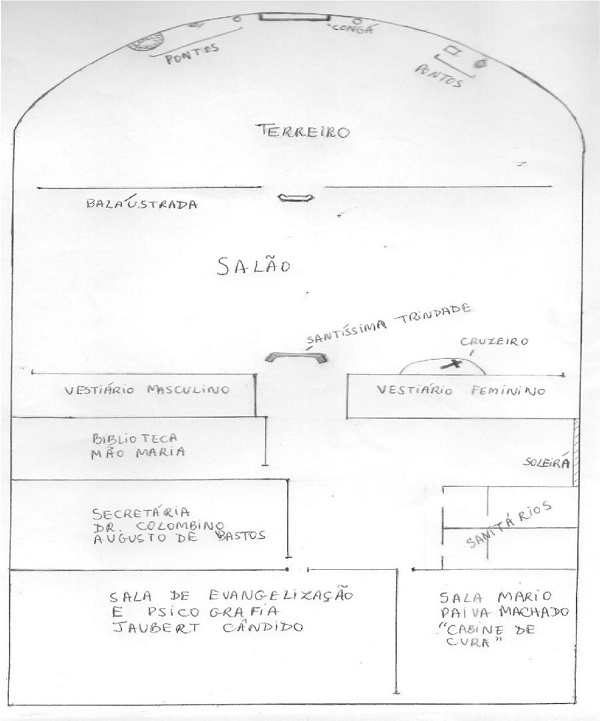 CONGÁ
PONTOS
PONTOS
TERREIRO
BALAÚSTRADA
SALÃO
SANTÍSSIMA TRINDADE
CRUZEIRO
VESTIÁRIO MASCULINO
VESTIÁRIO FEMININO
BIBLIOTECA
MÃO MARIA
SOLEIRÁ
SECRETÁRIA
DR. COLOMBINO
AUGUSTO DE BASTOS
SANITÁRIOS
SALA DE EVANGELIZAÇÃO
E PSICOGRAFIA
JAUBERT CÂNDIDO
SALA MARIO
PAIVA MACHADO
"CABINE DE
CURA"